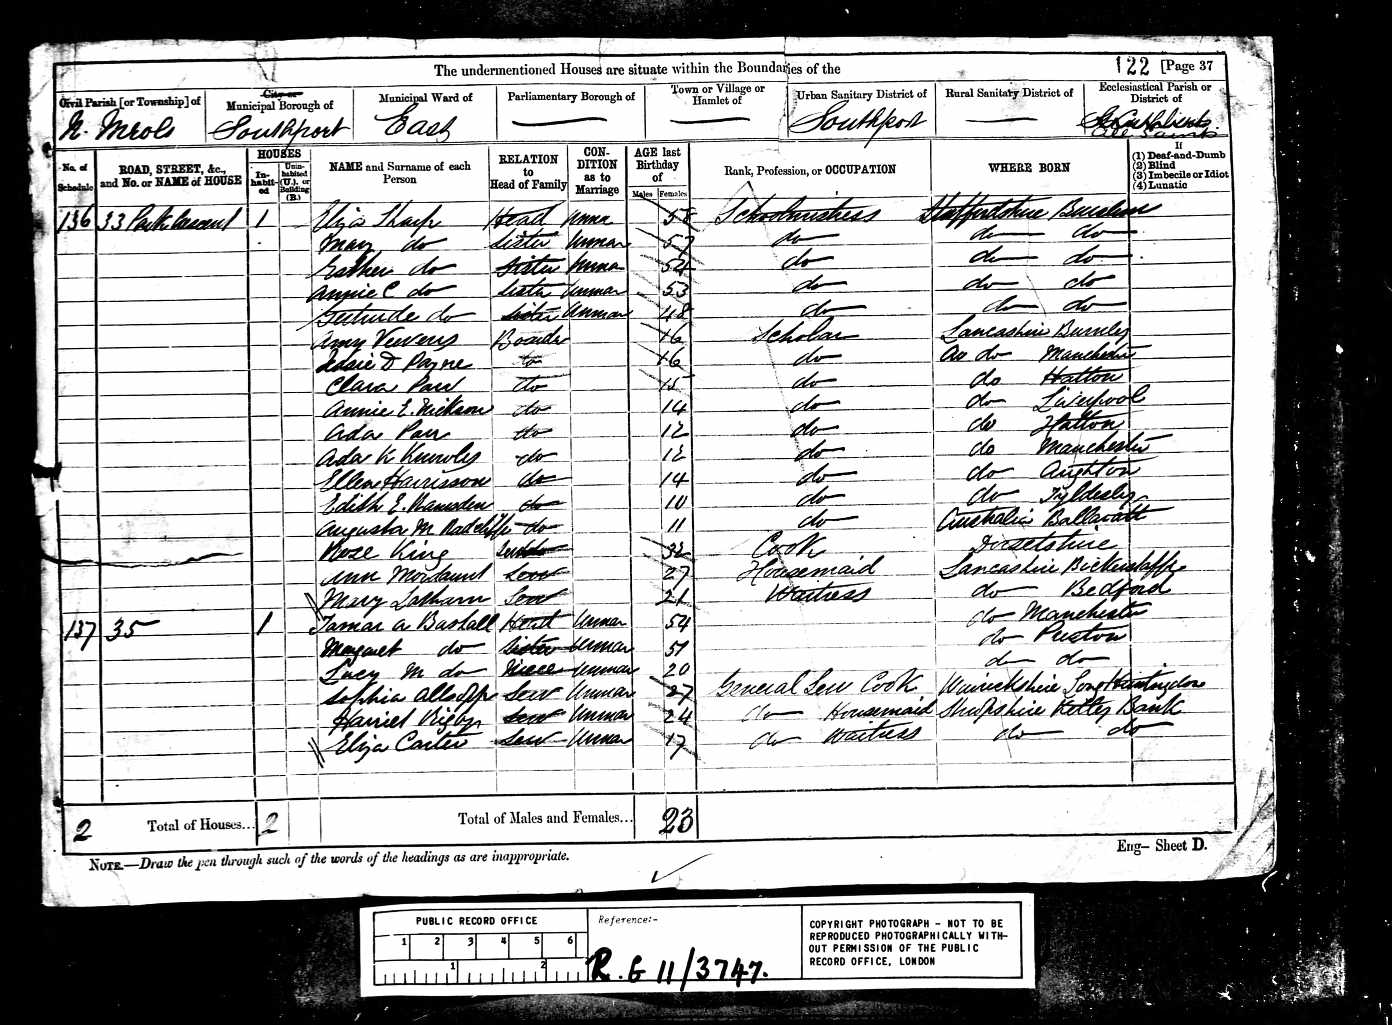 The undermentioned Houses are situate within the Boundaries of the 122 [Page 37
Civil Parish [or Township] of
City or Municipal Borough of
Municipal Ward of
Parliamentary Borough of
Town or Village or Hamlet of
Urban Sanitary District of
Rural Sanitary District of
Ecclesiastical Parish or District of
N. Meols Southport East Southport
No. of Schedule
ROAD, STREET, &c., and No. or NAME of HOUSE
HOUSES
Inhabited
Uninhabited (U.), or Building (B.)
NAME and Surname of each Person
RELATION to Head of Family
CONDITION as to Marriage
AGE last Birthday of
Males Females
Rank, Profession, or OCCUPATION
WHERE BORN
If
(1) Deaf-and-Dumb
(2) Blind
(3) Imbecile or Idiot
(4) Lunatic
136 33 Park Crescent 1 Eliza Sharp Head Unmar 58 Schoolmistress Staffordshire Burslem
Mary do Sister Unmar 57 do do do
Esther do Sister Unmar 54 do do do
Annie C do Sister Unmar 53 do do do
Gertrude do Sister Unmar 48 do do do
Amy Veevers Boarder 16 Scholar Lancashire Burnley
D Payne do 16 do do Manchester
Clara Parr do 15 do do Hatton
Annie E. Nickson do 14 do do Liverpool
Ada Parr do 12 do do Hatton
Ada K Knowles do 12 do do Manchester
Ellen Harrisson do 14 do do Aughton
Edith E. Ramsden do 10 do do Tyldesley
Augusta M Radcliffe do 11 do Australia Ballaratt
Rose King 32 Cook Dorsetshire
Ann Mordaunt Serv 27 Housemaid Lancashire Bickerstaffe
Mary Latham Serv 21 Waitress do Bedford
137 35 1 Tamar A Head Unmar 54 do Manchester
Margaret do Sister Unmar 51 do Preston
Lucy M do Niece Unmar 20 do do
Sophia Serv Unmar 27 General Serv Cook Warwickshire
Harriet Rigby Serv Unmar 24 do Housemaid Shropshire Ketley Bank
Eliza Carter Serv Unmar 17 do Waitress do do
2 Total of Houses... 2 Total of Males and Females... 23
NOTE.—Draw the pen through such of the words of the headings as are inappropriate.
Eng– Sheet D.
PUBLIC RECORD OFFICE
1 2 3 4 5 6
1 2
Reference:-
R.G 11/3747.
COPYRIGHT PHOTOGRAPH - NOT TO BE
REPRODUCED PHOTOGRAPHICALLY WITH-
OUT PERMISSION OF THE PUBLIC
RECORD OFFICE, LONDON